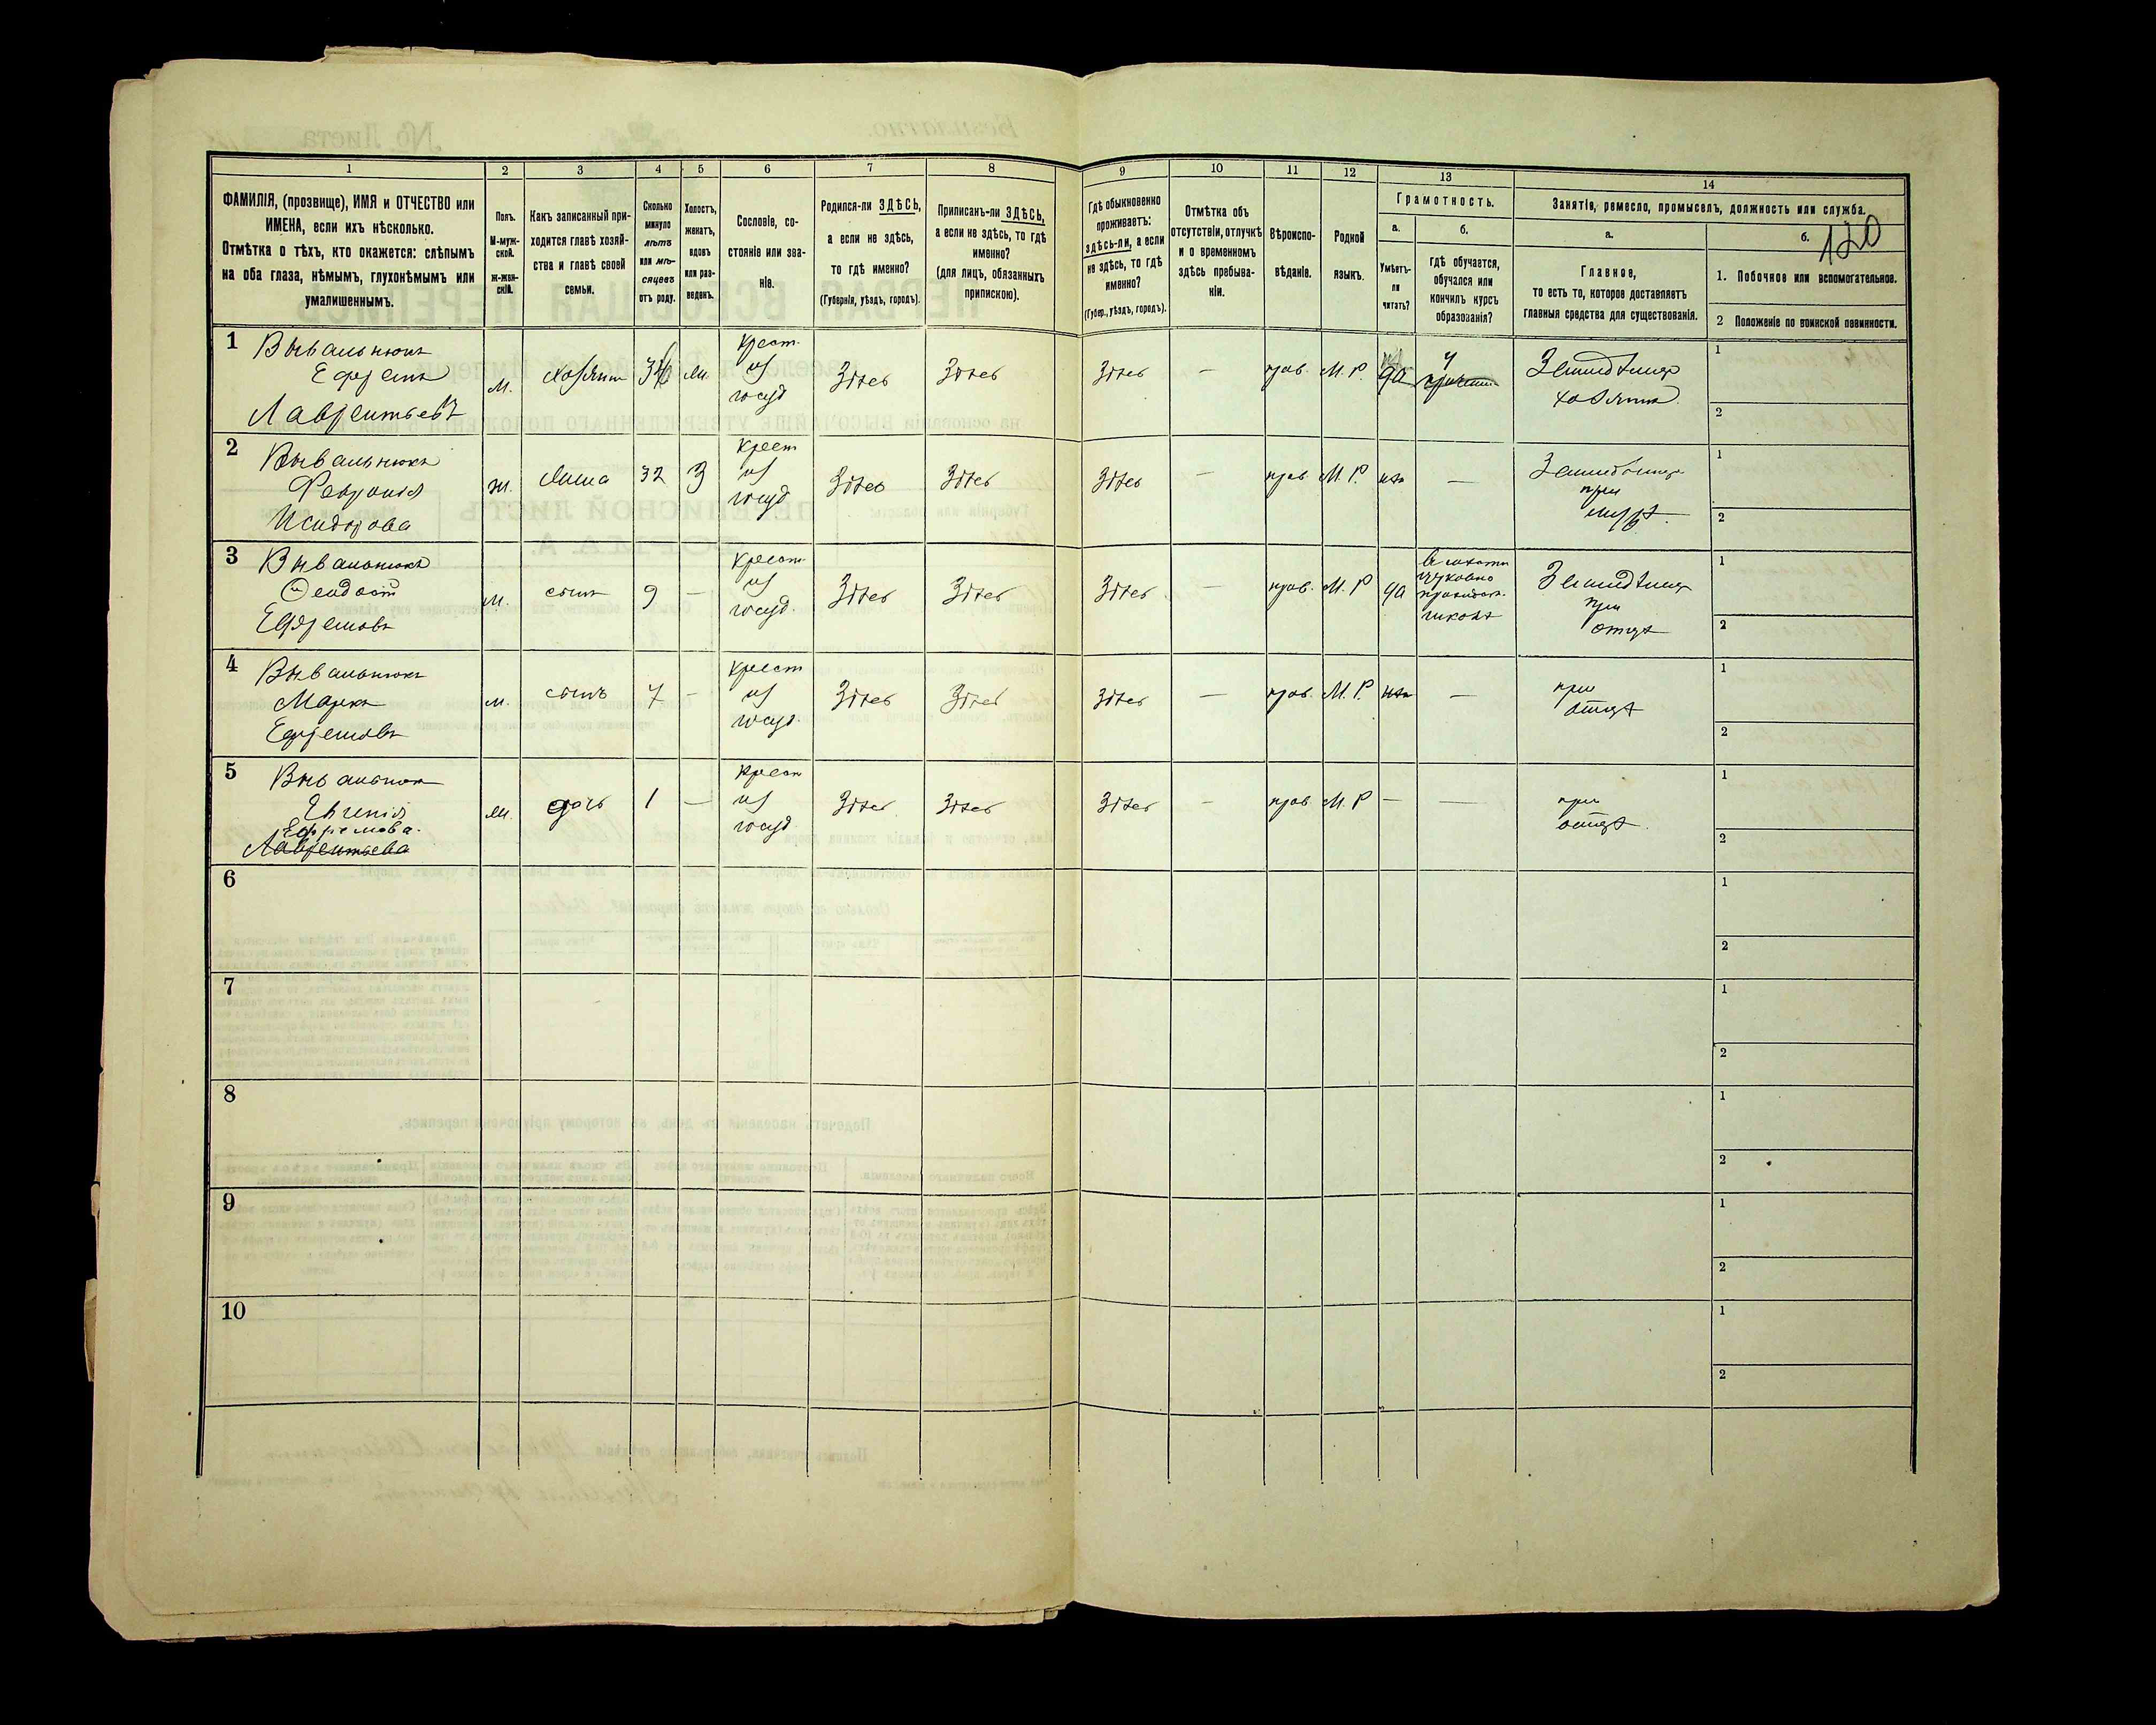 1 2 3 4 5 6 7 8 9 10 11 12 13 14
ФАМИЛІЯ, (прозвище), ИМЯ и ОТЧЕСТВО или
ИМЕНА, если ихъ нѣсколько.
Отмѣтка о тѣхъ, кто окажется: слѣпымъ
на оба глаза, нѣмымъ, глухонѣмымъ или
умалишеннымъ.
Полъ.
М-муж-
ской.
Ж-жен-
скій.
Какъ записанный при-
ходится главѣ хозяй-
ства и главѣ своей
семьи.
Сколько
минуло
лѣтъ
или мѣ-
сяцевъ
отъ роду.
Холостъ,
женатъ,
вдовъ
или раз-
веденъ.
Сословіе, со-
стояніе или зва-
ніе.
Родился-ли ЗДѢСЬ,
а если не здѣсь,
то гдѣ именно?
(Губернія, уѣздъ, городъ).
Приписанъ-ли ЗДѢСЬ,
а если не здѣсь, то гдѣ
именно?
(для лицъ, обязанныхъ
припискою).
Гдѣ обыкновенно
проживаетъ:
здѣсь-ли, а если
не здѣсь, то гдѣ
именно?
(Губер., уѣздъ, городъ).
Отмѣтка объ
отсутствіи, отлучкѣ
и о временномъ
здѣсь пребыва-
ніи.
Вѣроиспо-
вѣданіе.
Родной
языкъ.
Грамотность.
а.
Умѣетъ-
ли
читать?
б.
гдѣ обучается,
обучался или
кончилъ курсъ
образованія?
Занятіе, ремесло, промыселъ, должность или служба.
а.
Главное,
то есть то, которое доставляетъ
главныя средства для существованія.
б.
120
1. Побочное или вспомогательное.
2 Положеніе по воинской повинности.
1
Вывальнюкъ
Ефремъ
Лаврентьевъ
м.
хозяинъ
крест.
из
госуд
Здѣсь
Здѣсь
Здѣсь
—
прав.
М. Р.
да
Земледѣлец
хозяинъ
1
2
2
Вывальнюкъ
Февронія
Исидорова
ж.
жена
32
З
крест
из
госуд
Здѣсь
Здѣсь
Здѣсь
—
прав
М. Р.
нѣт
—
при
мужѣ.
1
2
3
Вывальнюкъ
Ѳеодосій
Ефремовъ
м.
сынъ
9
—
крест.
из
госуд.
Здѣсь
Здѣсь
Здѣсь
—
прав.
М. Р
да
школѣ
Земледѣлец
при
отцѣ
1
2
4
Вывальнюкъ
Маркъ
Ефремовъ
м.
сынъ
7
—
крест
из
госуд.
Здѣсь
Здѣсь
Здѣсь
—
прав.
М. Р.
нѣт
—
при
отцѣ
1
2
5
Вывальнюк
Евгенія
Ефремова.
Лаврентьева
дочь
1
—
крест
из
госуд
Здѣсь
Здѣсь
Здѣсь
—
прав.
М. Р
—
—
при
отцѣ.
1
2
6
1
2
7
1
2
8
1
2
9
1
2
10
1
2